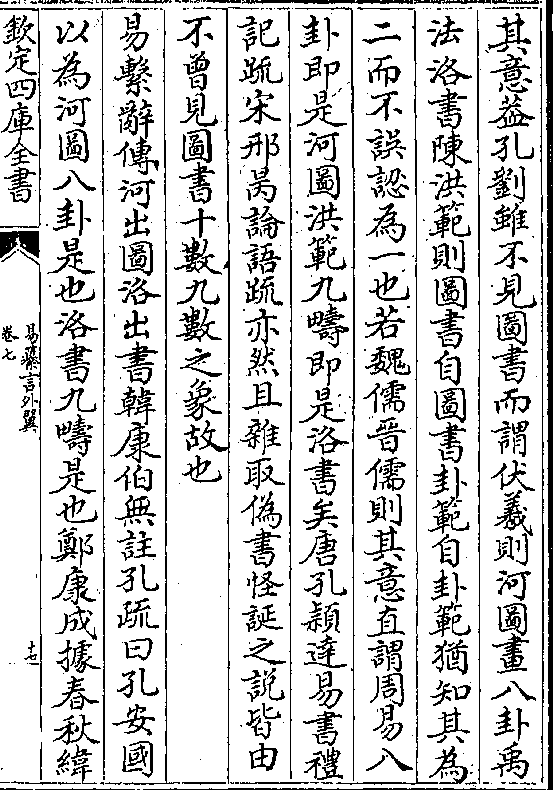 其意葢孔劉雖不見圖書而謂伏羲則河圖畫八卦禹
法洛書陳洪範則圖書自圖書卦範自卦範猶知其為
二而不誤認為一也若魏儒晉儒則其意直謂周易八
卦即是河圖洪範九疇即是洛書矣唐孔頴達易書禮
記疏宋邢昺論語疏亦然且雜取偽書怪誕之說皆由
不曾見圖書十數九數之象故也
易繫辭傳河出圖洛出書韓康伯無註孔疏曰孔安國
以為河圖八卦是也洛書九疇是也鄭康成據春秋緯
欽定四庫全書
易纂言外翼
卷七
十七